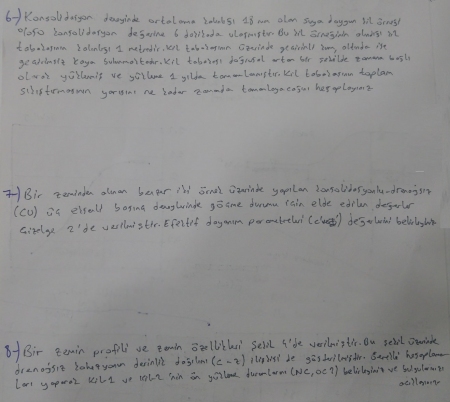 6-) Konsolidasyon deneyinde ortalama kalınlığı 18 mm olan suya doygun kil örneği
%50 konsolidasyon değerine 6 dakikada ulaşmıştır. Bu kil örneğinin alındığı kil
tabakasının kalınlığı 1 metredir. Kil tabakasının üzerinde geçirimli kum, altında ise
geçirimsiz kaya bulunmaktadır. Kil tabakası doğrusal artan bir şekilde zamana bağlı
olarak yüklenmiş ve yükleme 1 yılda tamamlanmıştır. Kil tabakasının toplam
sıkıştırmasının yarısını ne kadar zamanda tamamlayacağını hesaplayınız
7-) Bir zeminden alınan benzer iki örnek üzerinde yapılan konsolidasyonlu-drenajsız
(CU) üç eksenli basınç deneylerinde göçme durumu için elde edilen değerler
Çizelge 2'de verilmiştir. Efektif dayanım parametreleri değerlerini belirleyiniz
8-) Bir zemin profili ve zemin özellikleri Şekil 4'de verilmiştir. Bu şekil üzerinde
drenajsız kohezyonun derinlik dağılımı (c-z) ilişkisi de gösterilmiştir. Gerekli hesaplama
ları yaparak Kil-1 ve Kil-2'nin ön yükleme durumlarını (NC, OC?) belirleyiniz ve bulgularınızı
açıklayınız